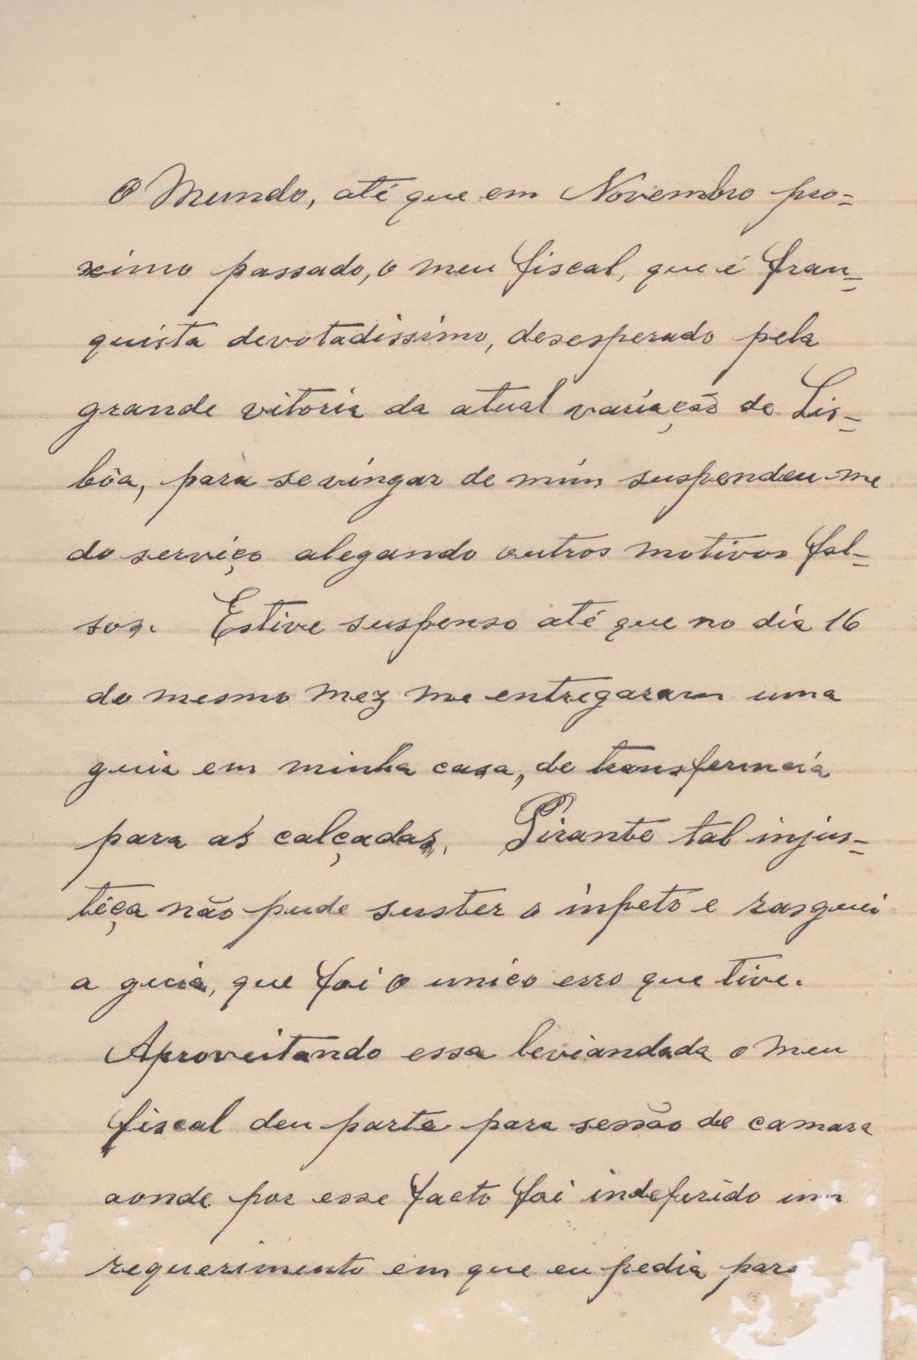 O Mundo, até que em Novembro pro-
ximo passado, o meu fiscal, que é fran-
quista devotadissimo, desesperado pela
grande vitoria da atual variação de Lis-
bôa, para se vingar de mim suspendeu-me
do serviço alegando outros motivos fal-
sos. Estive suspenso até que no dia 16
do mesmo mez me entregaram uma
guia em minha casa, de transferncia
para as calçadas. Pirante tal injus-
tiça não pude suster o impeto e rasguei
a guia, que foi o unico erro que tive.
Aproveitando essa leviandade o meu
fiscal deu parte para sessão de camara
aonde por esse facto foi indeferido um
requerimento em que eu pedia para